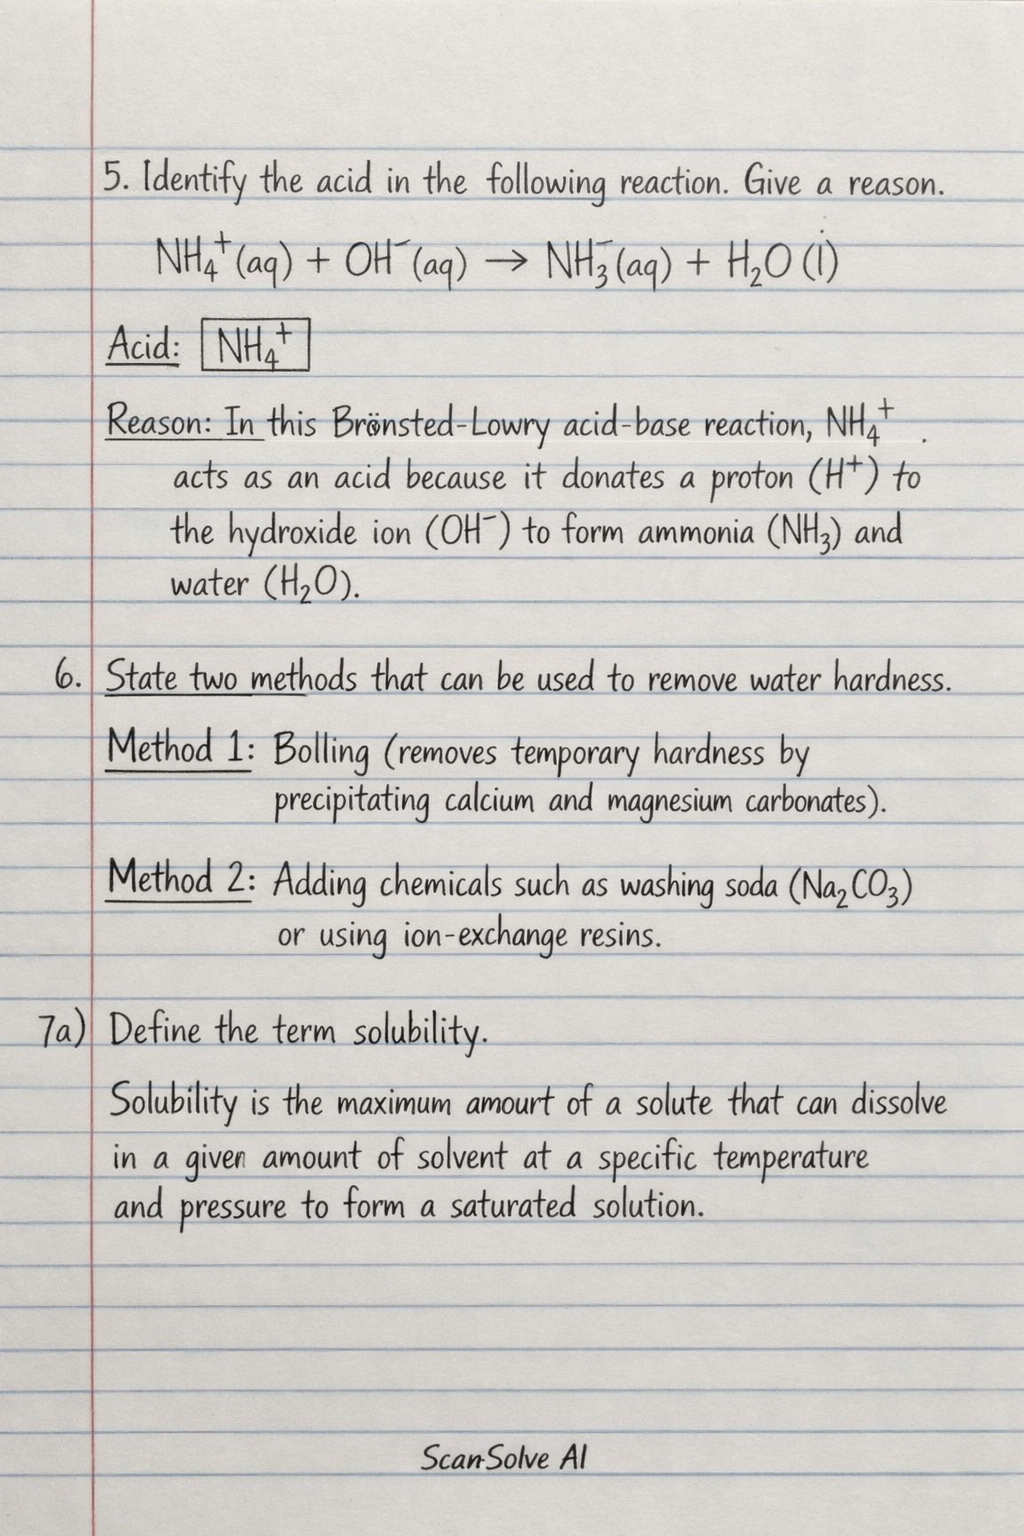 5. Identify the acid in the following reaction. Give a reason.
NH₄⁺(aq) + OH⁻(aq) → NH₃⁻(aq) + H₂O (i)
Acid: NH₄⁺
Reason: In this Brönsted-Lowry acid-base reaction, NH₄⁺ .
acts as an acid because it donates a proton (H⁺) to
the hydroxide ion (OH⁻) to form ammonia (NH₃) and
water (H₂O).
6. State two methods that can be used to remove water hardness.
Method 1: Bolling (removes temporary hardness by
precipitating calcium and magnesium carbonates).
Method 2: Adding chemicals such as washing soda (Na₂CO₃)
or using ion-exchange resins.
7a) Define the term solubility.
Solubility is the maximum amourt of a solute that can dissolve
in a given amount of solvent at a specific temperature
and pressure to form a saturated solution.
ScanSolve AI